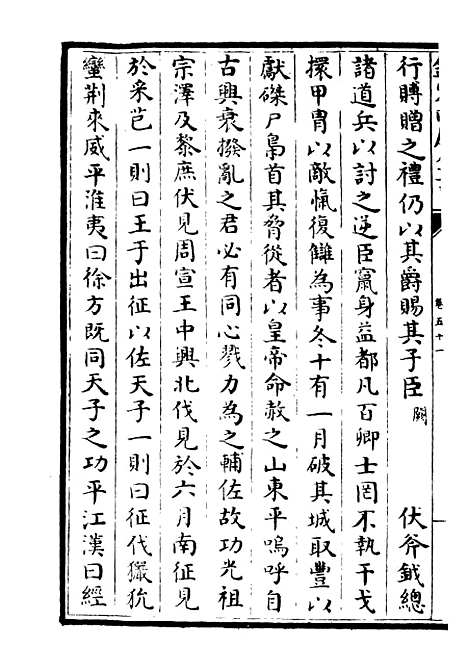 行賻贈之禮仍以其爵賜其子臣闕 伏斧鉞總
諸道兵以討之逆臣竄身益都凡百卿士罔不執干戈
擐甲胄以敵愾復讎為事冬十有一月破其城取豐以
獻磔尸梟首其脅從者以皇帝命赦之山東平嗚呼自
古興衰撥亂之君必有同心戮力為之輔佐故功光祖
宗澤及黎庶伏見周宣王中興北伐見於六月南征見
於采芑一則曰王于出征以佐天子一則曰征伐玁狁
蠻荆來威平淮夷曰徐方既同天子之功平江漢曰經
卷五十一